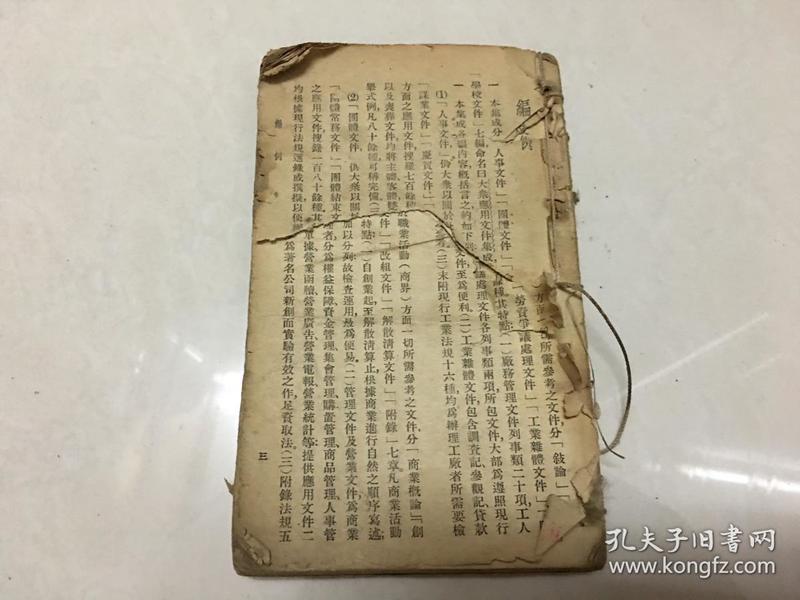 編 例
一 本集成分「人事文件」「團體文件」
「學校文件」七編命名曰大衆應用文件集成
一 本集成各編內容概括言之約如下列
(1)「人事文件」供大衆以關於
方面之應用文件搜羅七百餘種
以及喪葬文件均將主體客體雙
舉式例凡八十餘種可稱完備(三)
(2)「團體文件」供大衆以關於
「團體常務文件」「團體結束文
之應用文件搜錄一百八十餘種其
均根據現行法規選錄或撰擬以便
編 例
方面之 所需參考之文件分「敍論」「
「勞資爭議處理文件」「工業雜體文件」
種其特點(一)廠務管理文件列事類二十項工人
議處理文件各列事類兩項所包文件大部爲遵照現行
文件至爲便利(二)工業雜體文件包含調查記參觀記貸款
(三)末附現行工業法規十六種均爲辦理工廠者所需要檢
「謀業文件」「慶賀文件」
職業活動(商界)方面一切所需參考之文件分「商業概論」「創
件」「改組文件」「解散清算文件」「附錄」七章凡商業活動
特點(一)自創業起至解散清算止根據商業進行自然之順序寫述
加以分列故檢查運用最爲便易(二)管理文件及營業文件爲商業
者分爲權益保障資金管理集會管理購置管理商品管理人事管
單據營業函牘營業廣告營業電報營業統計等提供應用文件二
爲著名公司新創而實驗有效之作足資取法(三)附錄法規五
三
孔夫子旧書网
www.kongfz.com